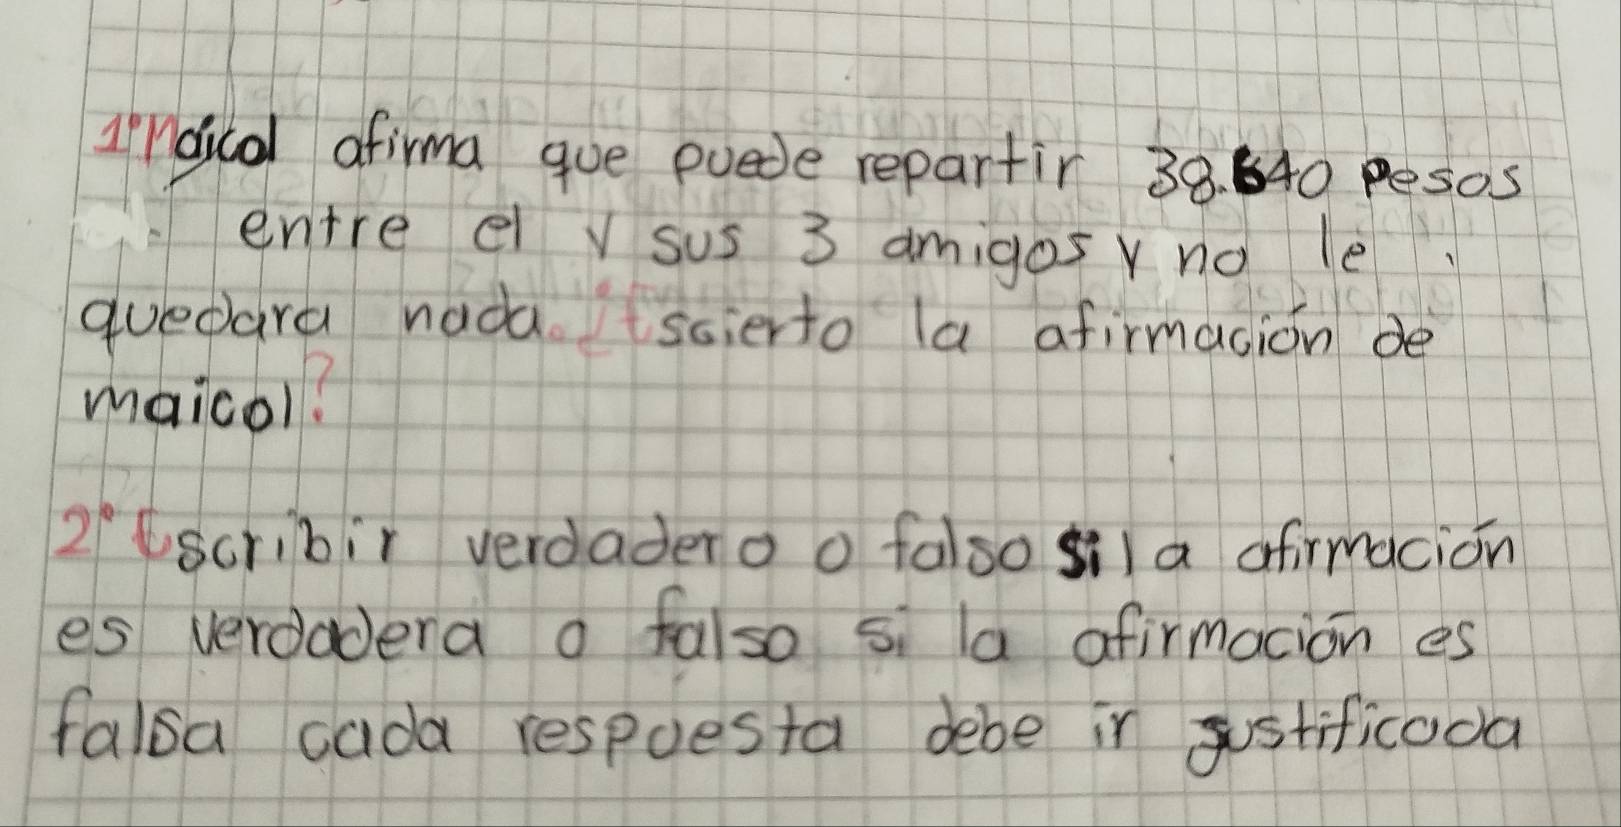 1º Maicol afirma que puede repartir 38.640 pesos
entre el y sus 3 amigos y no le
quedara nada. ¿Escierto la afirmación de
maicol?
2º Escribir verdadero o falso si la afirmación
es verdadera o falso si la afirmación es
falsa cada respuesta debe ir justificada